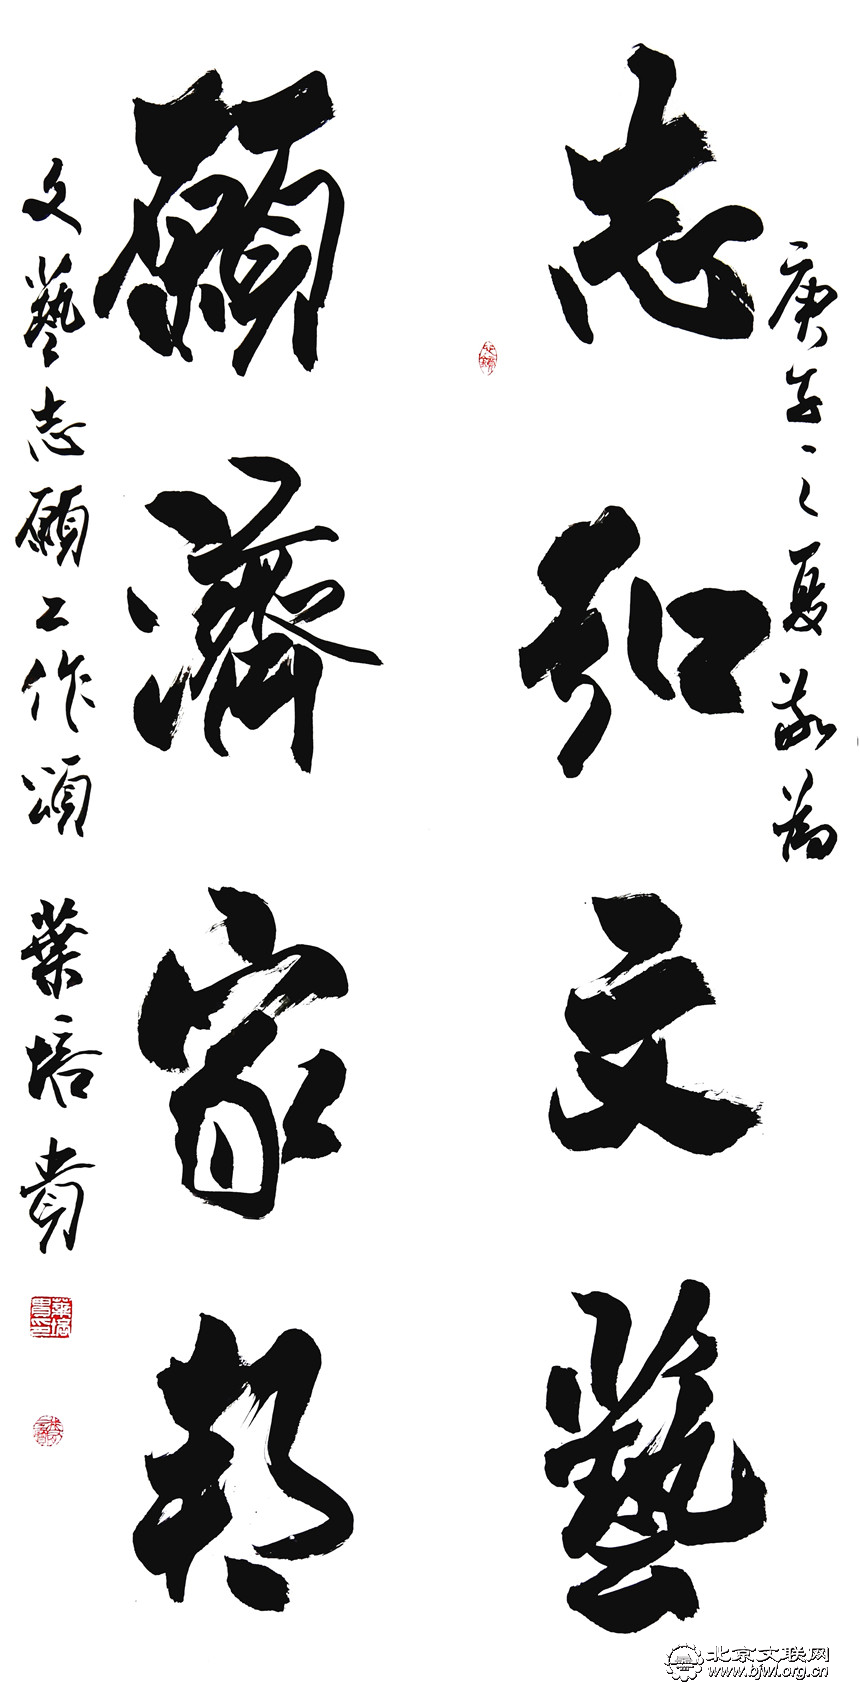 庚子之夏敬為
志弘文藝
願濟家邦
文藝志願工作頌 葉培貴
葉培貴印
北京文联网
www.bjwl.org.cn